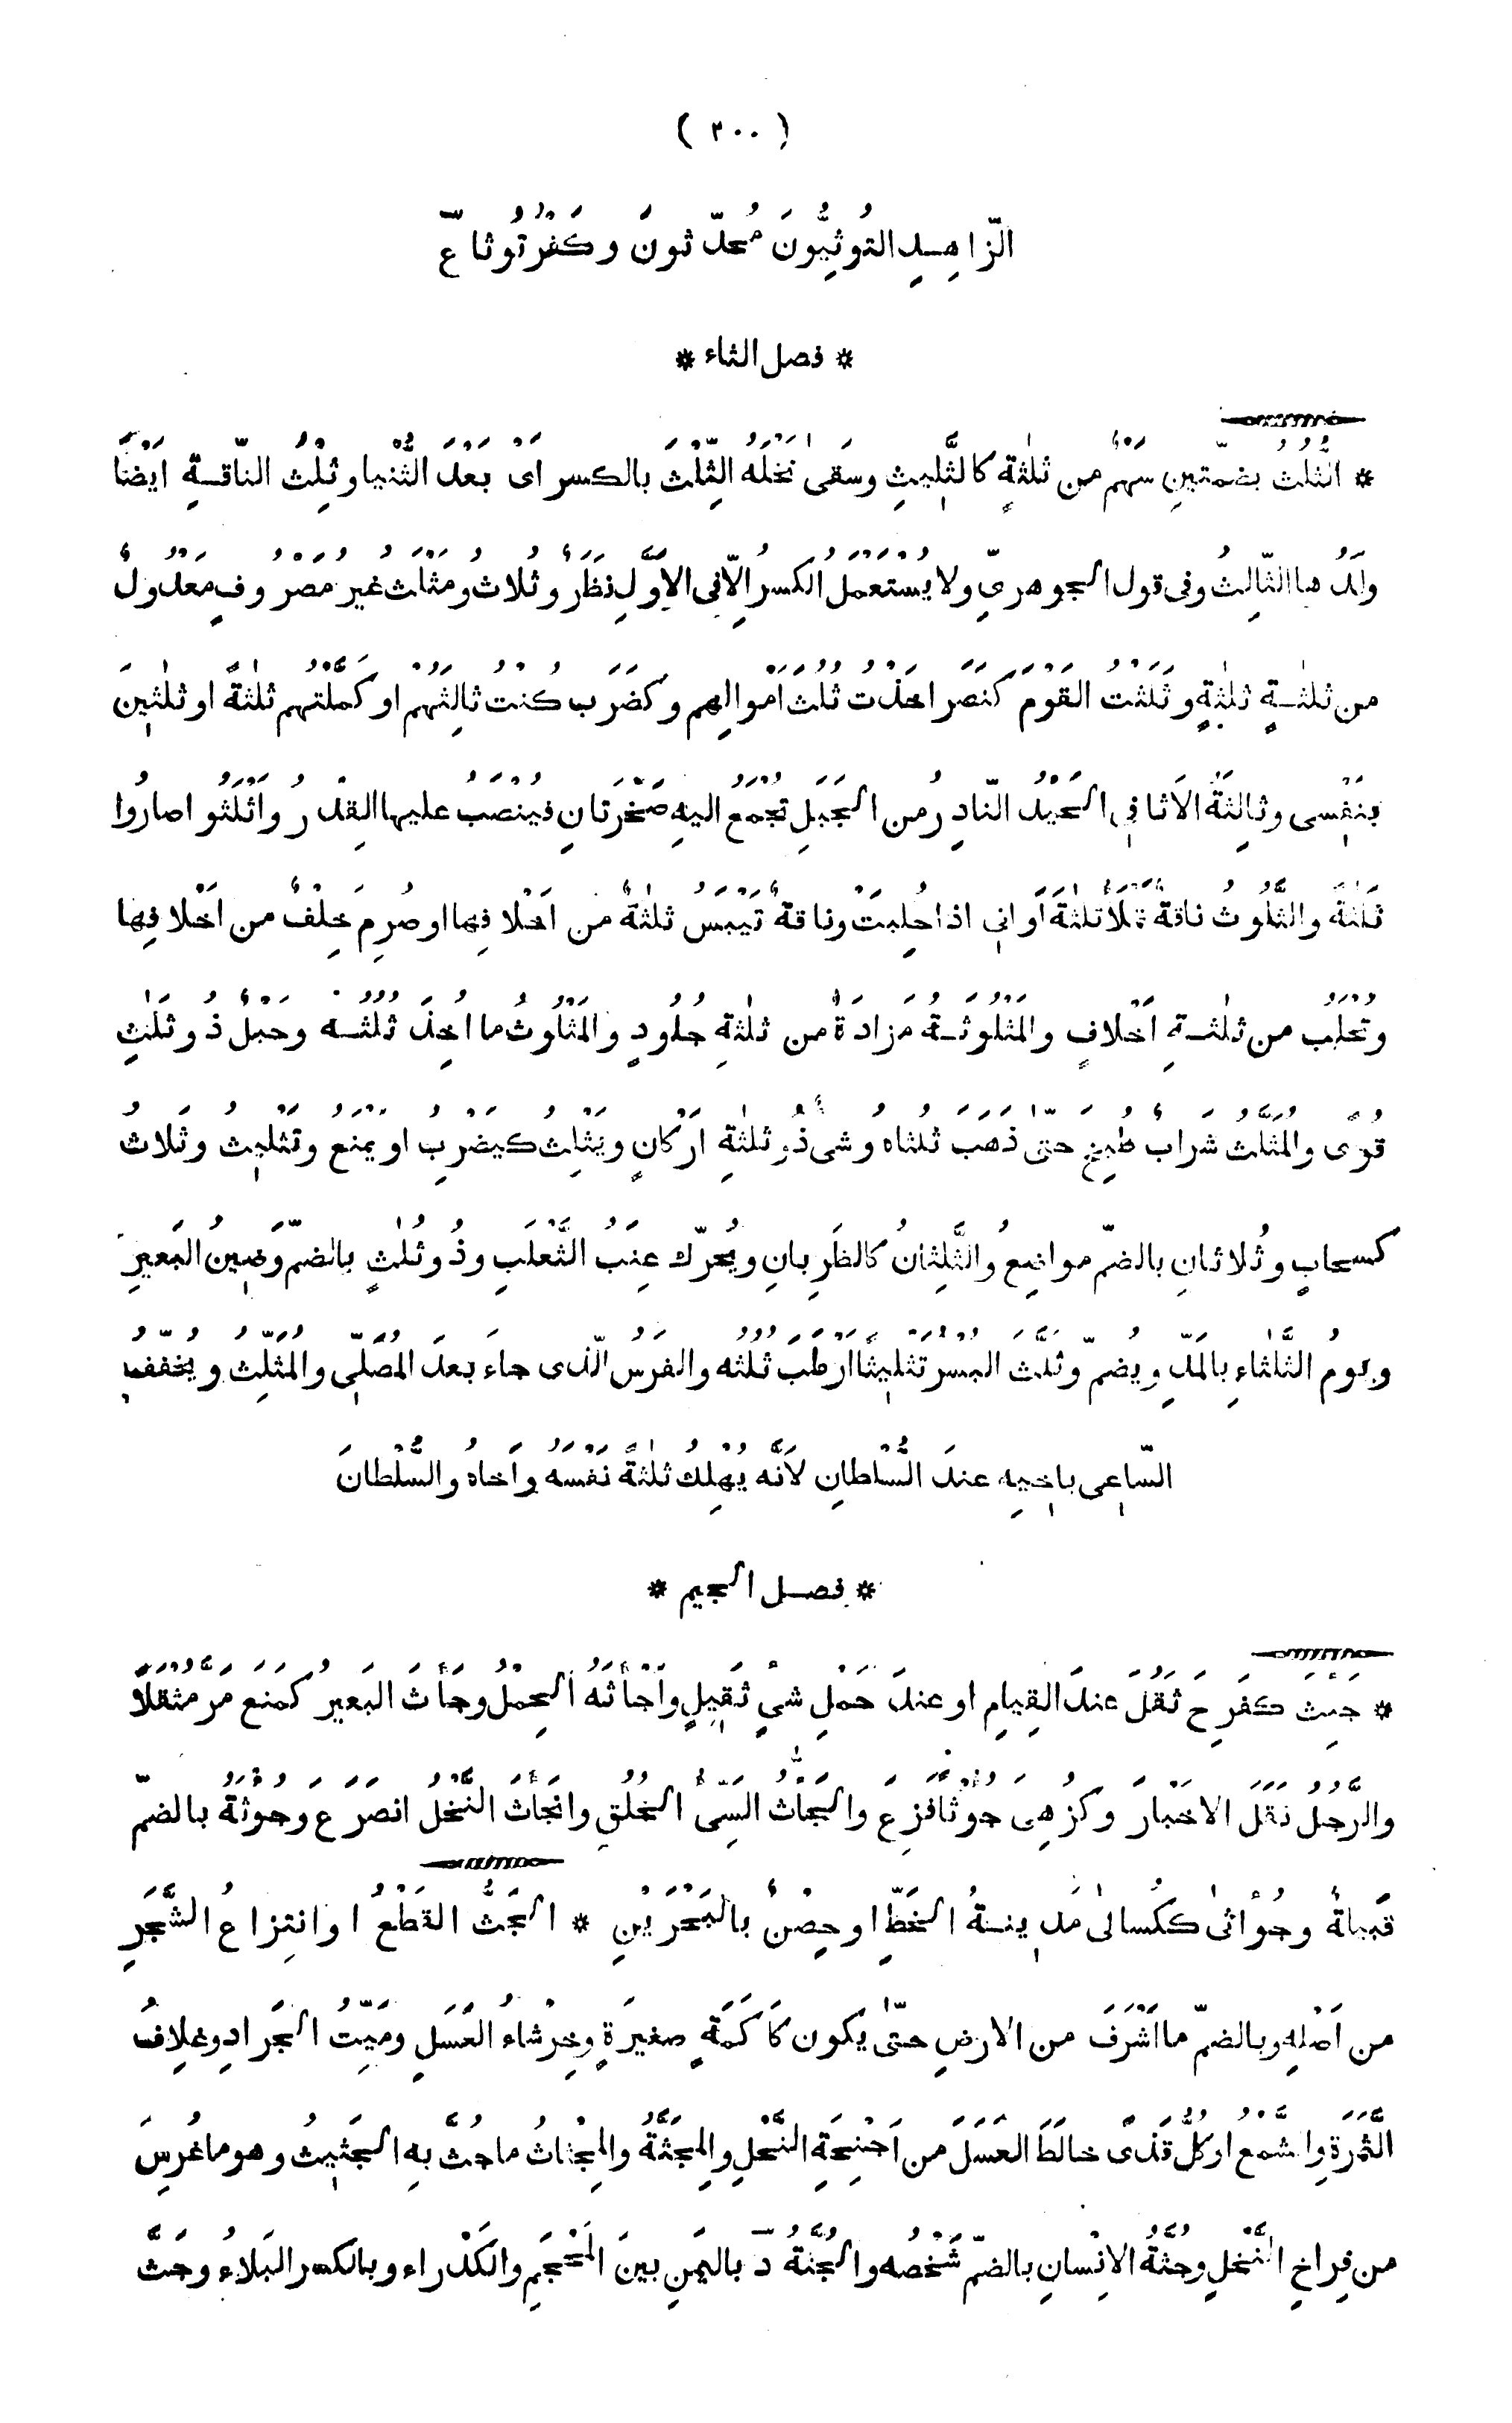 ( ٢٠٠ )
الزّاهِدِ التُوثِيُّونَ مُحدّثونَ وكَفَرْتُوثا عّ
* فصل الثاء *
* الثُّلُثُ بضمّتينِ سَهْمٌ من ثلٰثةٍ كالثَّلِيثِ وسَقَى نَخْلَه الثِّلْثَ بالكسر اى بَعْدَ الثُّنيا وثِلْثُ النّاقةِ ايْضًا
ولَدُها الثّالِثُ وفى قول الجوهريّ ولا يُسْتَعْمَلُ الكسرُ الّا فى الاَوَّلِ نَظَرٌ وثُلاثُ ومَثْلَثُ غيرُ مَصْرُوفٍ مَعْدُولٌ
من ثلٰثةٍ ثلٰثةٍ وثَلَثْتُ القَوْمَ كنَصَر اخَذْت ثُلُثَ اَمْوالِهم وكضَرَب كُنْتُ ثالِثَهُمْ او كَمَّلْتُهم ثلٰثةً او ثلٰثينَ
بنَفْسى وثالِثةُ الاَثافِي الحَيْدُ النّادِرُ من الجَبَلِ تُجْمَعُ اليهِ صَخْرَتانِ فيُنْصَبُ عليها القِدْرُ واَثْلَثُوا صارُوا
ثَلٰثةً والثَّلُوثُ ناقةٌ تَمْلأُ ثلٰثةَ اَواني اذا حُلِبَتْ وناقةٌ تَيْبَسُ ثلٰثةٌ من اَخْلافِها او صُرِمَ خِلْفٌ من اَخْلافِها
وتُحْلَبُ من ثلٰثةِ اَخْلافٍ والمَثْلُوثَةُ مزادَةٌ من ثلٰثةِ جُلُودٍ والمَثْلُوثُ ما اُخِذَ ثُلُثُه وحَبْلٌ ذُو ثَلٰثِ
قُوًى والمُثَلَّثُ شرابٌ طُبِخَ حتّى ذَهَبَ ثُلُثاه وشىٌ ذُو ثلٰثةِ اَرْكانٍ ويَثْلِثُ كيَضْرِبُ او يَمْنَعُ وتَثْلِيثُ وثَلاثُ
كسحابٍ وثُلاثانِ بالضمّ مواضِعُ والثَّلِثانُ كالظَرِبانِ ويُحرّك عِنَبُ الثَّعْلَبِ وذُو ثُلٰثٍ بالضمّ وَضِينُ البَعيرِ
ويومُ الثَّلٰثاءِ بالمَدِّ ويُضمّ وثَلَّثَ البُسْرُ تَثْلِيثًا اَرْطَبَ ثُلُثُه والفَرَسُ الّذى جاءَ بعدَ المُصَلِّى والمُثَلِّثُ ويُخفّفُ
السّاعِى باخيهِ عندَ السُّلْطانِ لاَنَّه يُهْلِكُ ثلٰثةً نَفْسَه واَخاهُ والسُّلْطانَ
* فصل الجيم *
* جَئِثَ كفَرِحَ ثَقُلَ عندَ القِيامِ او عندَ حَمْلِ شىْ‌ءٍ ثَقِيلٍ واَجْأَثَهُ الحِمْلُ وجَأَثَ البَعيرُ كمَنَعَ مَرَّ مُثْقَلًا
والرَّجُلُ نَقَلَ الاَخبارَ وكزُهِىَ جُؤُوثًا فَزِعَ والجَأّثُ السَّيِّئُ الخُلُقِ وانْجَأَثَ النَّخْلُ انصَرَعَ وجُؤْثَةُ بالضمّ
قَبِيلةٌ وجُؤاثٰى ككُسالٰى مَدِينةُ الخَطِّ او حِصْنٌ بالبَحْرَيْنِ * الجَثُّ القَطْعُ او انتِزاعُ الشَّجَرِ
من اَصْلِهِ وبالضمّ ما اَشْرَفَ من الارضِ حتّى يكونَ كاَكَمَةٍ صغيرَةٍ وخِرْشاءُ العَسَلِ ومَيِّتُ الجَرادِ وغِلافُ
الثَّمَرَةِ والشمعُ او كُلُّ قَذًى خالَطَ العَسَلَ من اَجْنِحَةِ النَّحْلِ والمِجَثَّةُ والمِجْثاثُ ما جُثَّ بهِ الجَثِيثُ وهو ما غُرِسَ
من فِراخِ النَّخْلِ وجُثَّةُ الانِسْانِ بالضمّ شَخْصُه والجُثَّةُ دّ باليَمَنِ بينَ المَحْجَمِ والكَدْراء وبالكسر البَلاءُ وجَثَّ